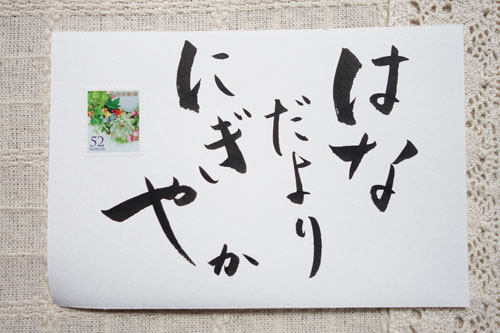 はな
だより
にぎ
やか
52